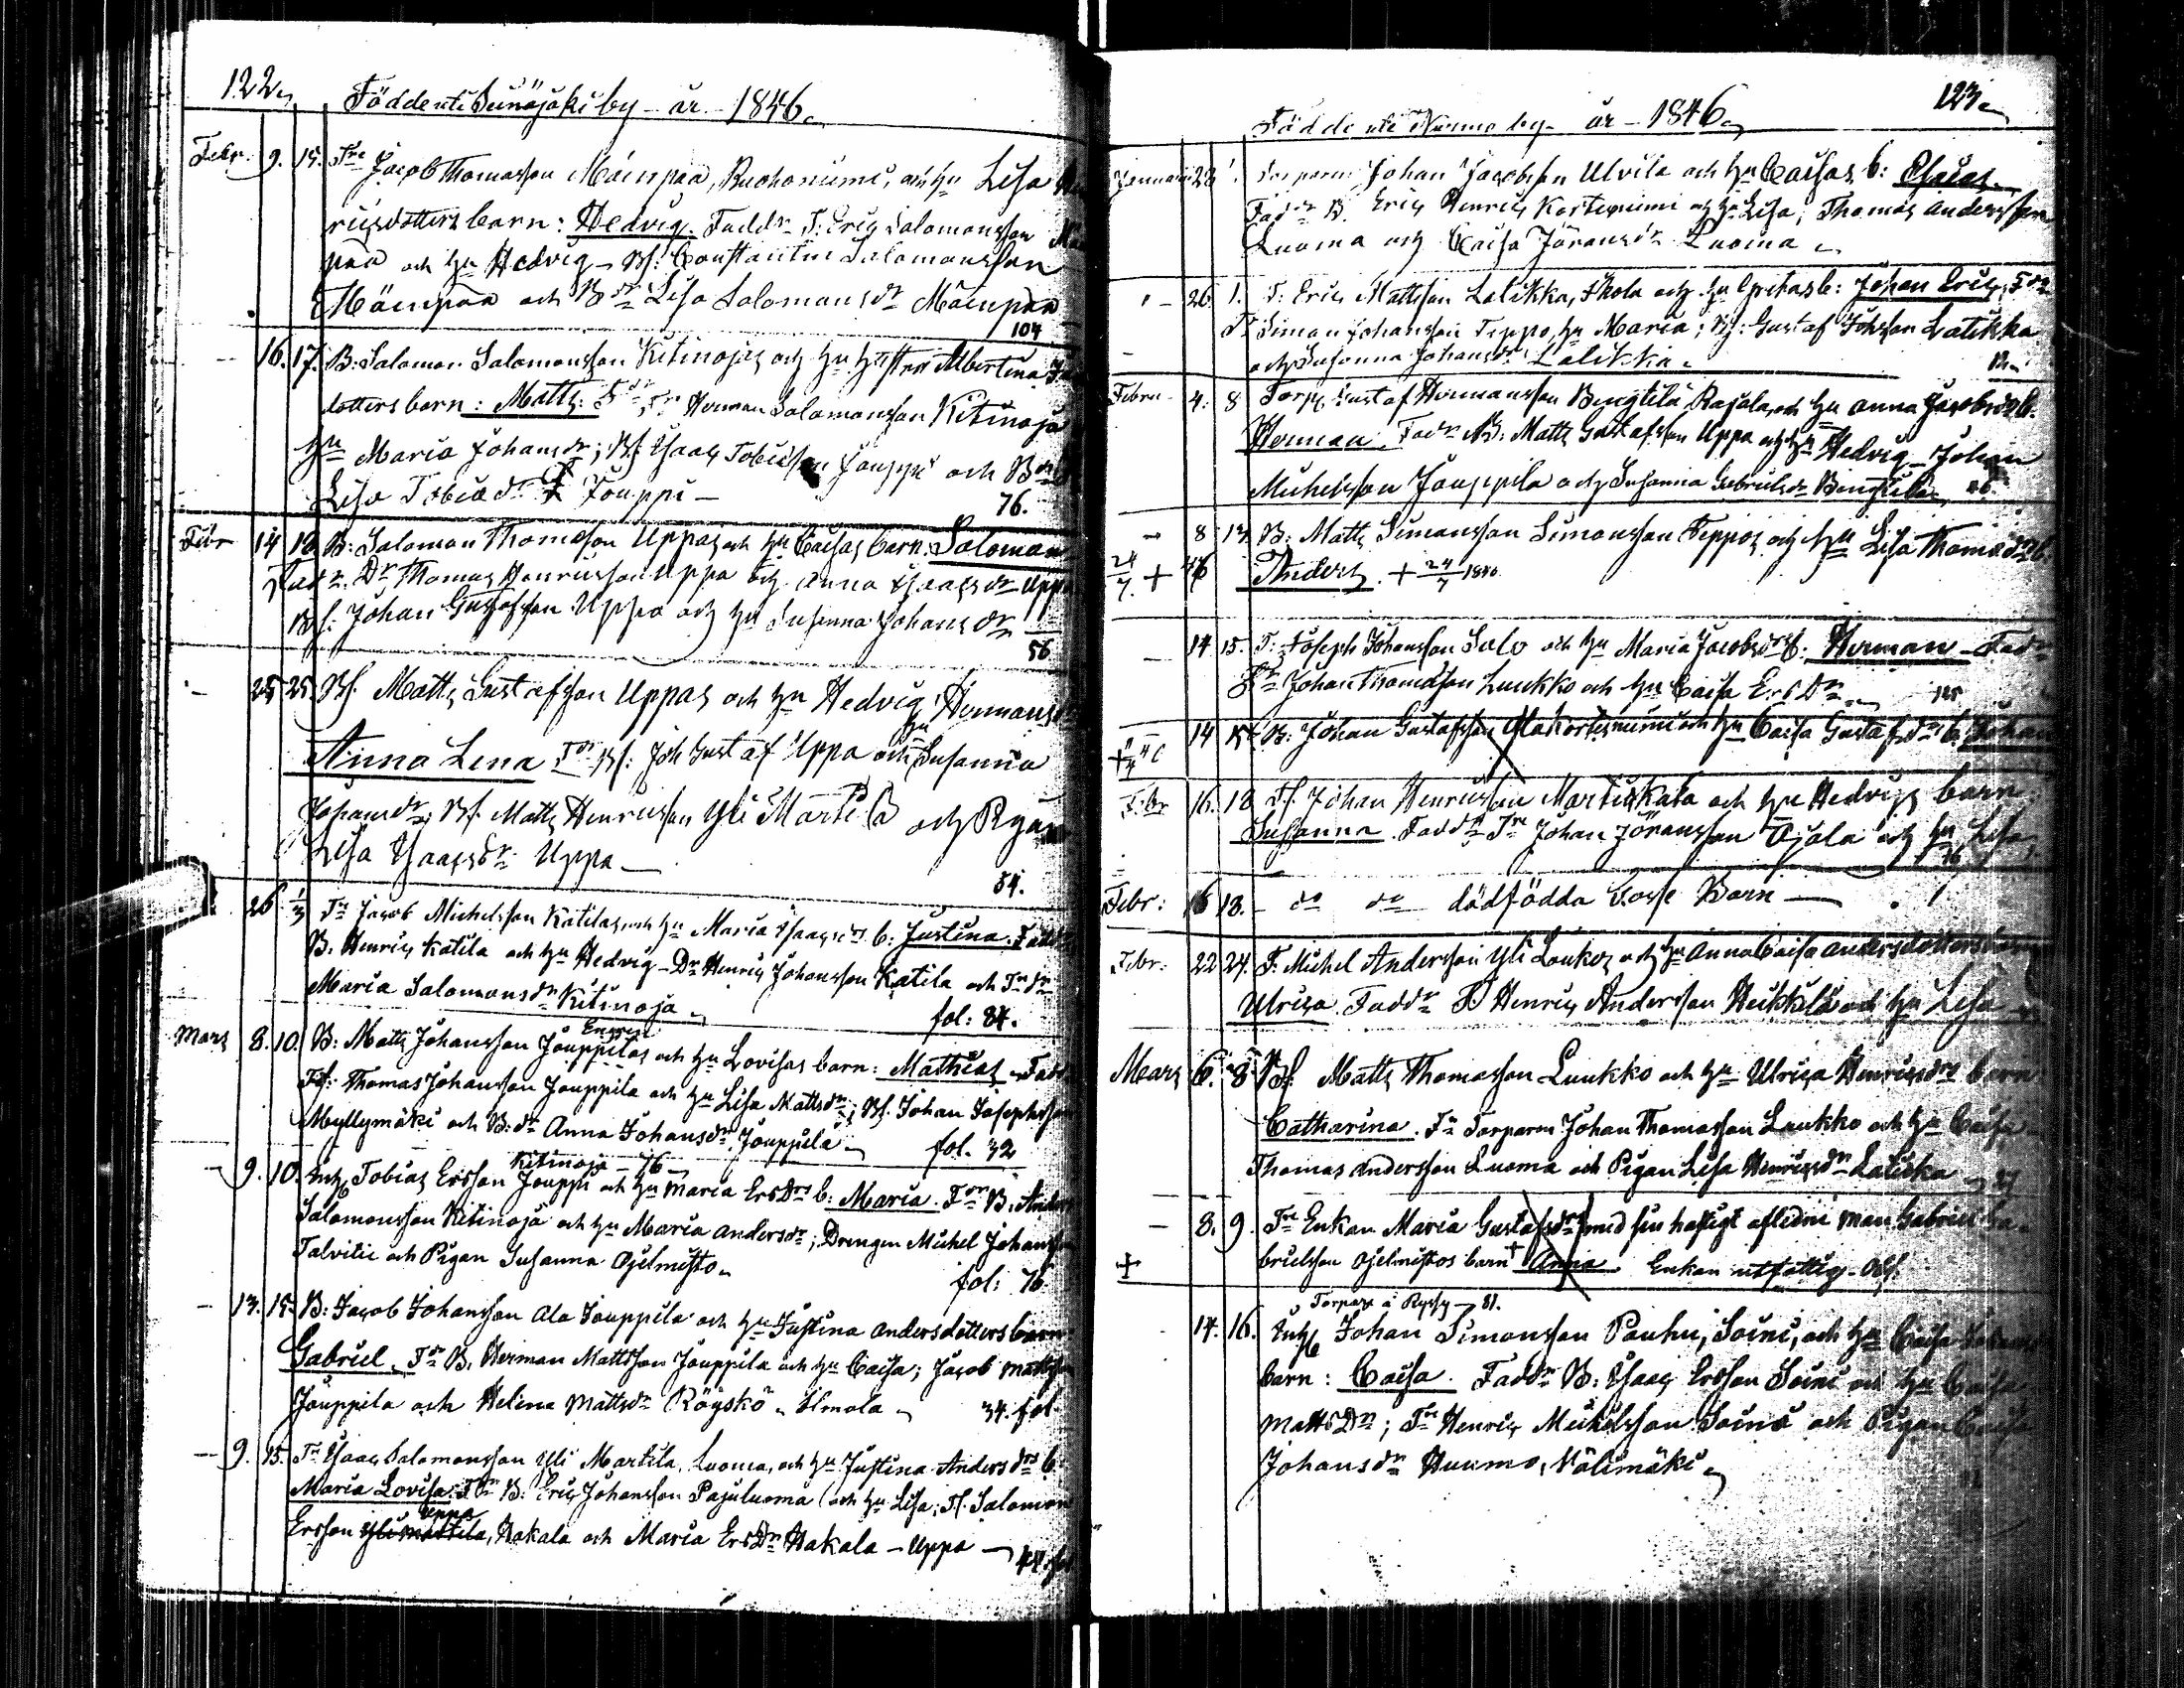 122.
Födde uti Seinäjoki by - år - 1846.
Febr. 9. 15. Tre Jacob Thomasson Mäinpää, Ruohoniemi, och hu Lisa
ricsdotters barn: Hedvig. Faddr T: Eric Salomonsson
pää och hu Hedvig - Bf: Constantin Salomonsson
Mäinpää och Bdr Lisa Salomonsdr Mäinpää
104
- 16. 17. B: Salomon Salomonsson Kitinojas och hu hustru Albertina
dotters barn: Matts: Fdr Herman Salomonsson Kitinoja
hu Maria Johansdr; Bf: Isaac Tobiasson Jouppi och
Lisa Tobiædr Jouppi -
76.
Febr 14 18 B: Salomon Thomasson Uppas och hu Caisas barn: Salomon
Fadr. Dr Thomas Henricsson Uppa och Anna Isaacsdr Uppa
Bf: Johan Gustafsson Uppa och hu Susanna Johansdr
56
- 25 25 Bf. Matts Gustafsson Uppas och hu Hedvig Hermansd
Anna Lena Fdr Bf: Joh Gustaf Uppa och hu Susanna
Johansdr; Bf. Matts Henricsson Yli Martila och Pigan
Lisa Isaacsdr Uppa -
54.
26 1/3 Tr Jacob Michelsson Katilas, och hu Maria Isaacsdrs b: Justina. Fadd
B. Henric Katila och hu Hedvig - Dr Henric Johansson Katila och
Maria Salomonsdr Kitinoja
fol: 84.
Mars 8. 10. B: Matts Johansson Jouppilas och hu Lovisas barn: Mathias - Fadd
Tf: Thomas Johansson Jouppila och hu Lisa Mattsdr; Bf. Johan Josephsson
Myllymäki och B:dr Anna Johansdr Jouppila
fol. 32
Kitinoja - 76
- 9. 10. Inh Tobias Ersson Jouppi och hu Maria ErsDrs b: Maria. Fdr B: Anders
Salomonsson Kitinoja och hu Maria Andersdr; Drengen Michel Johansson
Talvitie och Pigan Susanna Ojelmisto
fol: 76.
- 13. 15. B: Jacob Johansson Ala Jouppila och hu Justina Andersdotters barn
Gabriel. Fdr B. Herman Mattsson Jouppila och hu Caisa; Jacob Mattsson
Jouppila och Helena Mattsdr Röyskö, Ilmola
34. fol
- 9. 15. Tr Isaac Salomonsson Yli Martila, Luoma, och hu Justina Andersdrs b
Maria Lovisa. Fdr B: Eric Johansson Pajuluoma och hu Lisa; Tf. Salomon
Uppa
Ersson Yli Martila, Hakala och Maria ErsDr Hakala - Uppa -
44. fol
123.
Födde uti Nurmo by - år - 1846
Januari 23 1. Torparen Johan Jacobsson Ulvila och hu Caisas b: Esaias.
Fadr B. Eric Henric Kortesniemi och hu Lisa; Thomas Andersson
Luoma och Caisa Jöransdr Luoma
- 26. 1. T: Eric Mattsson Latikka, och hu Gretas b: Johan Eric, Fdr
T. Simon Johansson Teppo, hu Maria; Bf: Gustaf Johsson Latikka
och Susanna Johansdr Latikka.
Febru - 4. 8 Torp. Gustaf Hermansson Bengtila Rajala, och hu Anna Jacobsdrs b.
Herman. Fadr Nb: Matts Gustafsson Uppa och hu Hedvig - Johan
Michelsson Jouppila och Susanna Gabrielsdr Bengtila. 46.
- 8 13 B: Matts Simonsson Simonsson Teppos och hu Lisa Thomædrs b.
24/7 + 46 Anders. + 24/7 1846
- 14 15. T: Joseph Johansson Salo och hu Maria Jacobsdrs b: Herman - Fadr
Johan Thomasson Luukko och hu Caisa ErsDr
+ 14 15 B: Johan Gustafsson Alakortesniemi och hu Caisa Gustafsdrs b. Johan
Febr 16. 18 Tf. Johan Henricsson Martiskala och hu Hedvigs barn
Susanna. Faddr Tr Johan Jöransson Ojala och hu Lisa
Febr: 16 18. - do do dödfödda Gosse Barn -
Febr: 22 24. T: Michel Andersson Yli Loukos och hu Anna Caisa Andersdotters barn
Ulrica. Faddr B Henric Andersson Heikkilä och hu Lisa
Mars 6. 8 Bf Matts Thomasson Luukko och hu Ulrica Henricsdrs barn
Catharina. Fr Torparen Johan Thomasson Luukko och hu Caisa
Thomas Andersson Luoma och Pigan Lisa Henricsdr Laticka 27
- 8. 9. Tr Enkan Maria Gustafsdrs med sin hastigt aflidne man Gabriel Ga-
+ brielsson Ojelmistos barn + Anna. Enkan utfattig. Obs.
Torpare å Rypsy - 81.
14. 16. Inh Johan Simonsson Pouhu, Soini, och hu Caisa
barn: Caisa. Faddr B: Isaac Ersson Soini och hu Caisa
MattsDr; Tr Henric Michelsson Soini och Pigan Caisa
Johansdr Huumo, Välimäki